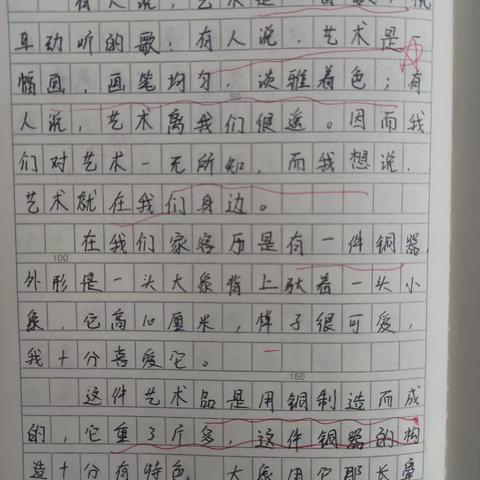 有人说，艺术是一首歌，优
耳动听的歌；有人说，艺术是一
幅画，画笔均匀，淡雅着色；有
50
人说，艺术离我们很远。因而我
们对艺术一无所知，而我想说，
艺术就在我们身边。
在我们家客厅是有一件铜器，
100
外形是一头大象背上驮着一头小
象，它高10厘米，样子很可爱，
我十分喜爱它。
150
这件艺术品是用铜制造而成
的，它重3斤多，这件铜器的构
造十分有特色，大象用它那长鼻